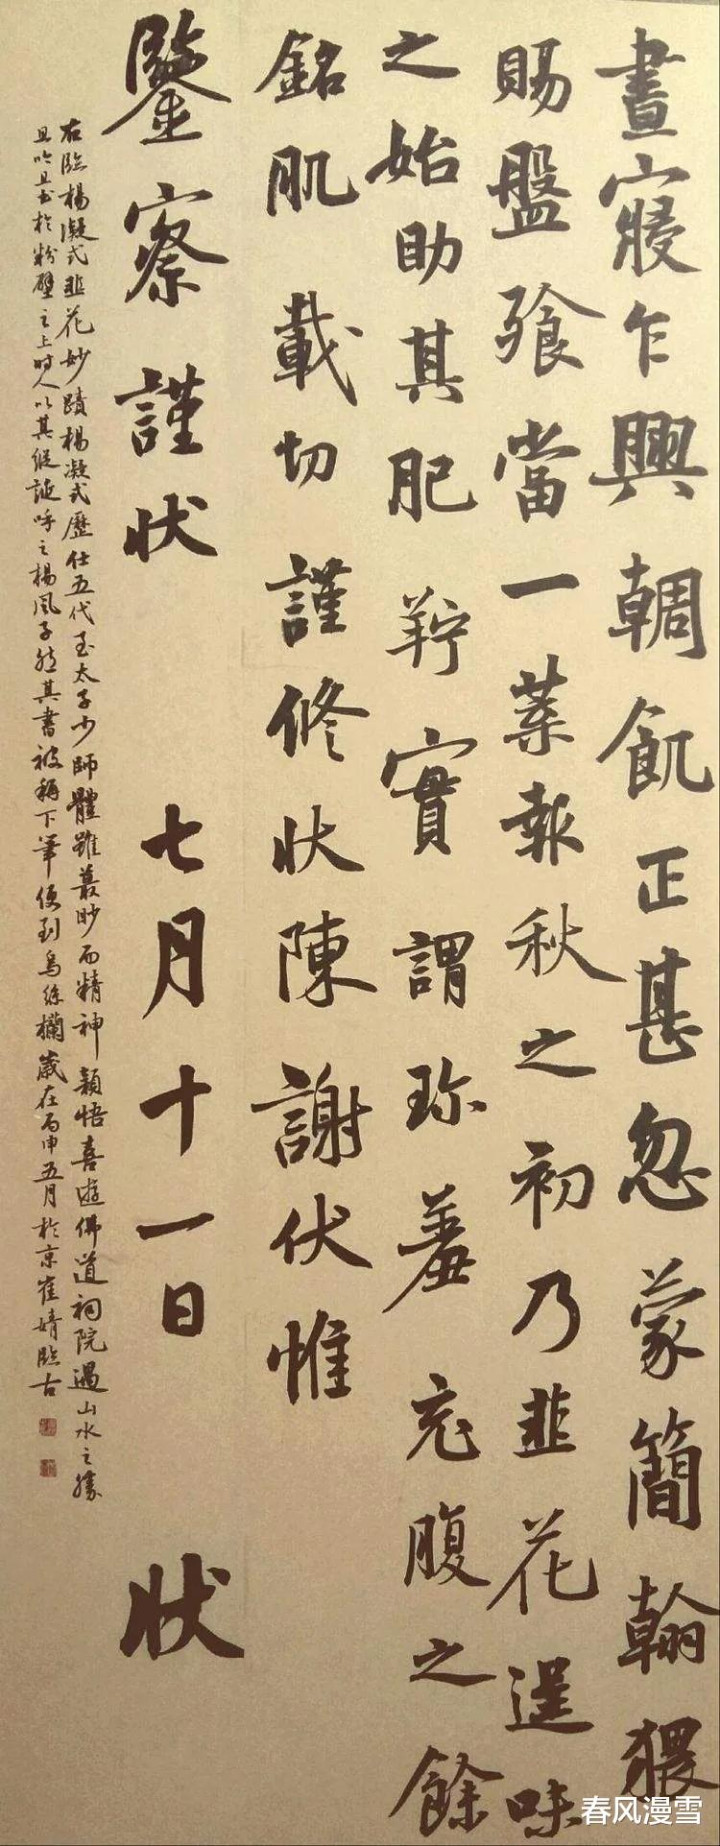 晝寢乍興輖飢正甚忽蒙簡翰猥
賜盤飧當一葉報秋之初乃韭花逞味
之始助其肥羜實謂珍羞充腹之餘
銘肌載切謹修狀陳謝伏惟
鑒察謹狀 七月十一日 狀
右臨楊凝式韭花妙蹟楊凝式歷仕五代至太子少師體雖蕞眇而精神穎悟喜遊佛道祠院遇山水之勝
且吟且書於粉壁之上時人以其縱誕呼之楊風子然其書被稱下筆便到烏絲欄歲在丙申五月於京崔婧臨古
春风漫雪